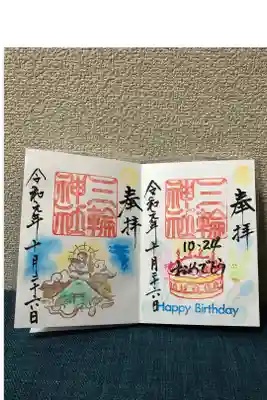 奉拝
三輪
神社
10.24
おめでとう
Happy Birthday
令和元年 十月二十六日
奉拝
三輪
神社
令和元年 十月二十六日